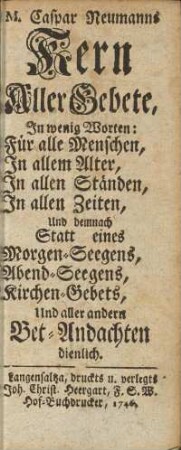 M. Caspar Neumanns
Kern
Aller Gebete,
In wenig Worten:
Für alle Menschen,
In allem Alter,
In allen Ständen,
In allen Zeiten,
Und demnach
Statt eines
Morgen-Seegens,
Abend-Seegens,
Kirchen-Gebets,
Und aller andern
Bet-Andachten
dienlich.
Langensaltza, druckts u. verlegts
Joh. Christ. Heergart, F. S. W.
Hof-Buchdrucker, 1746.